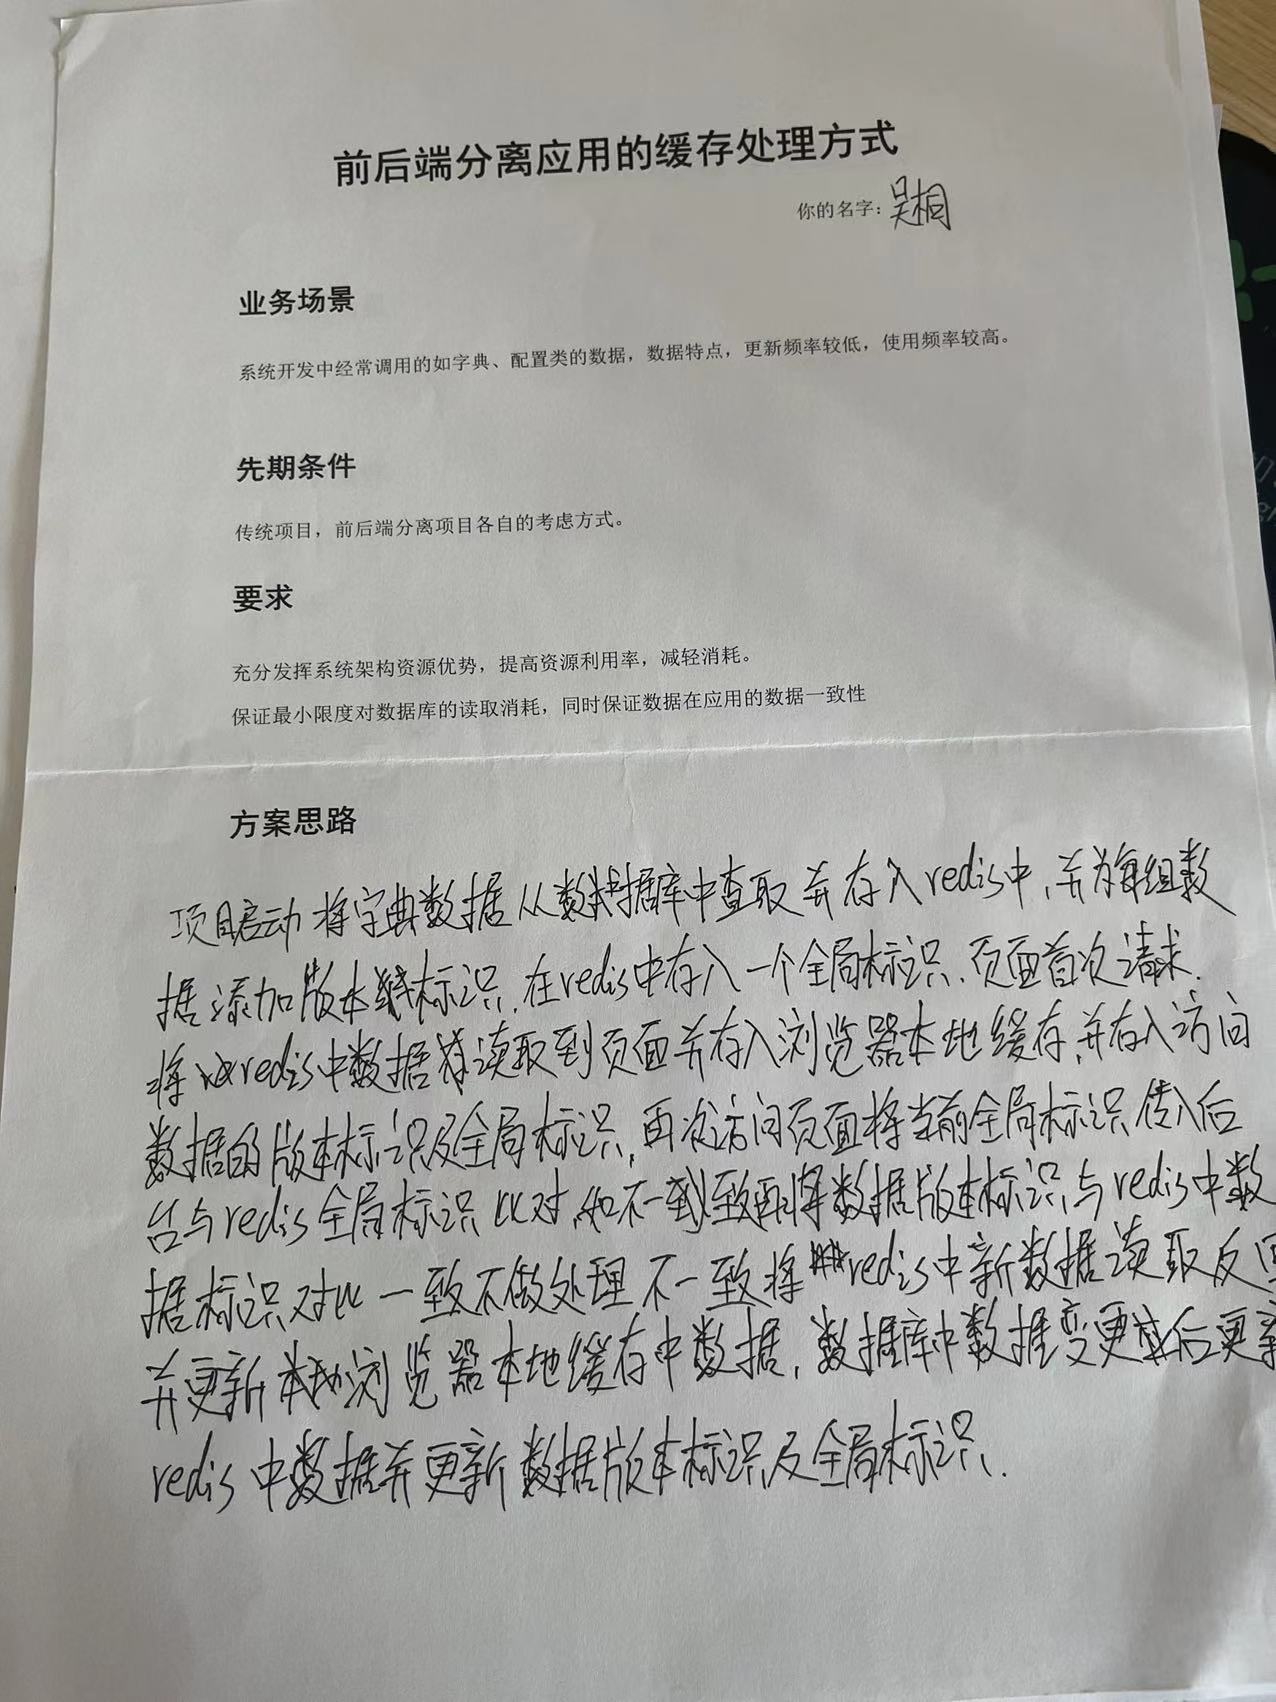 前后端分离应用的缓存处理方式
你的名字：吴桐
业务场景
系统开发中经常调用的如字典、配置类的数据，数据特点，更新频率较低，使用频率较高。
先期条件
传统项目，前后端分离项目各自的考虑方式。
要求
充分发挥系统架构资源优势，提高资源利用率，减轻消耗。
保证最小限度对数据库的读取消耗，同时保证数据在应用的数据一致性
方案思路
项目启动将字典数据从数据库中查取并存入redis中，并为每组数
据添加版本标识，在redis中存入一个全局标识，页面首次请求，
将redis中数据读取到页面并存入浏览器本地缓存，并存入访问
数据的版本标识及全局标识，再次访问页面将当前全局标识传入后
台与redis全局标识比对，如不一致再将数据版本标识与redis中数
据标识对比 一致不做处理 不一致将redis中新数据读取反回
并更新浏览器本地缓存中数据，数据库中数据变更后更新
redis中数据并更新数据版本标识及全局标识.